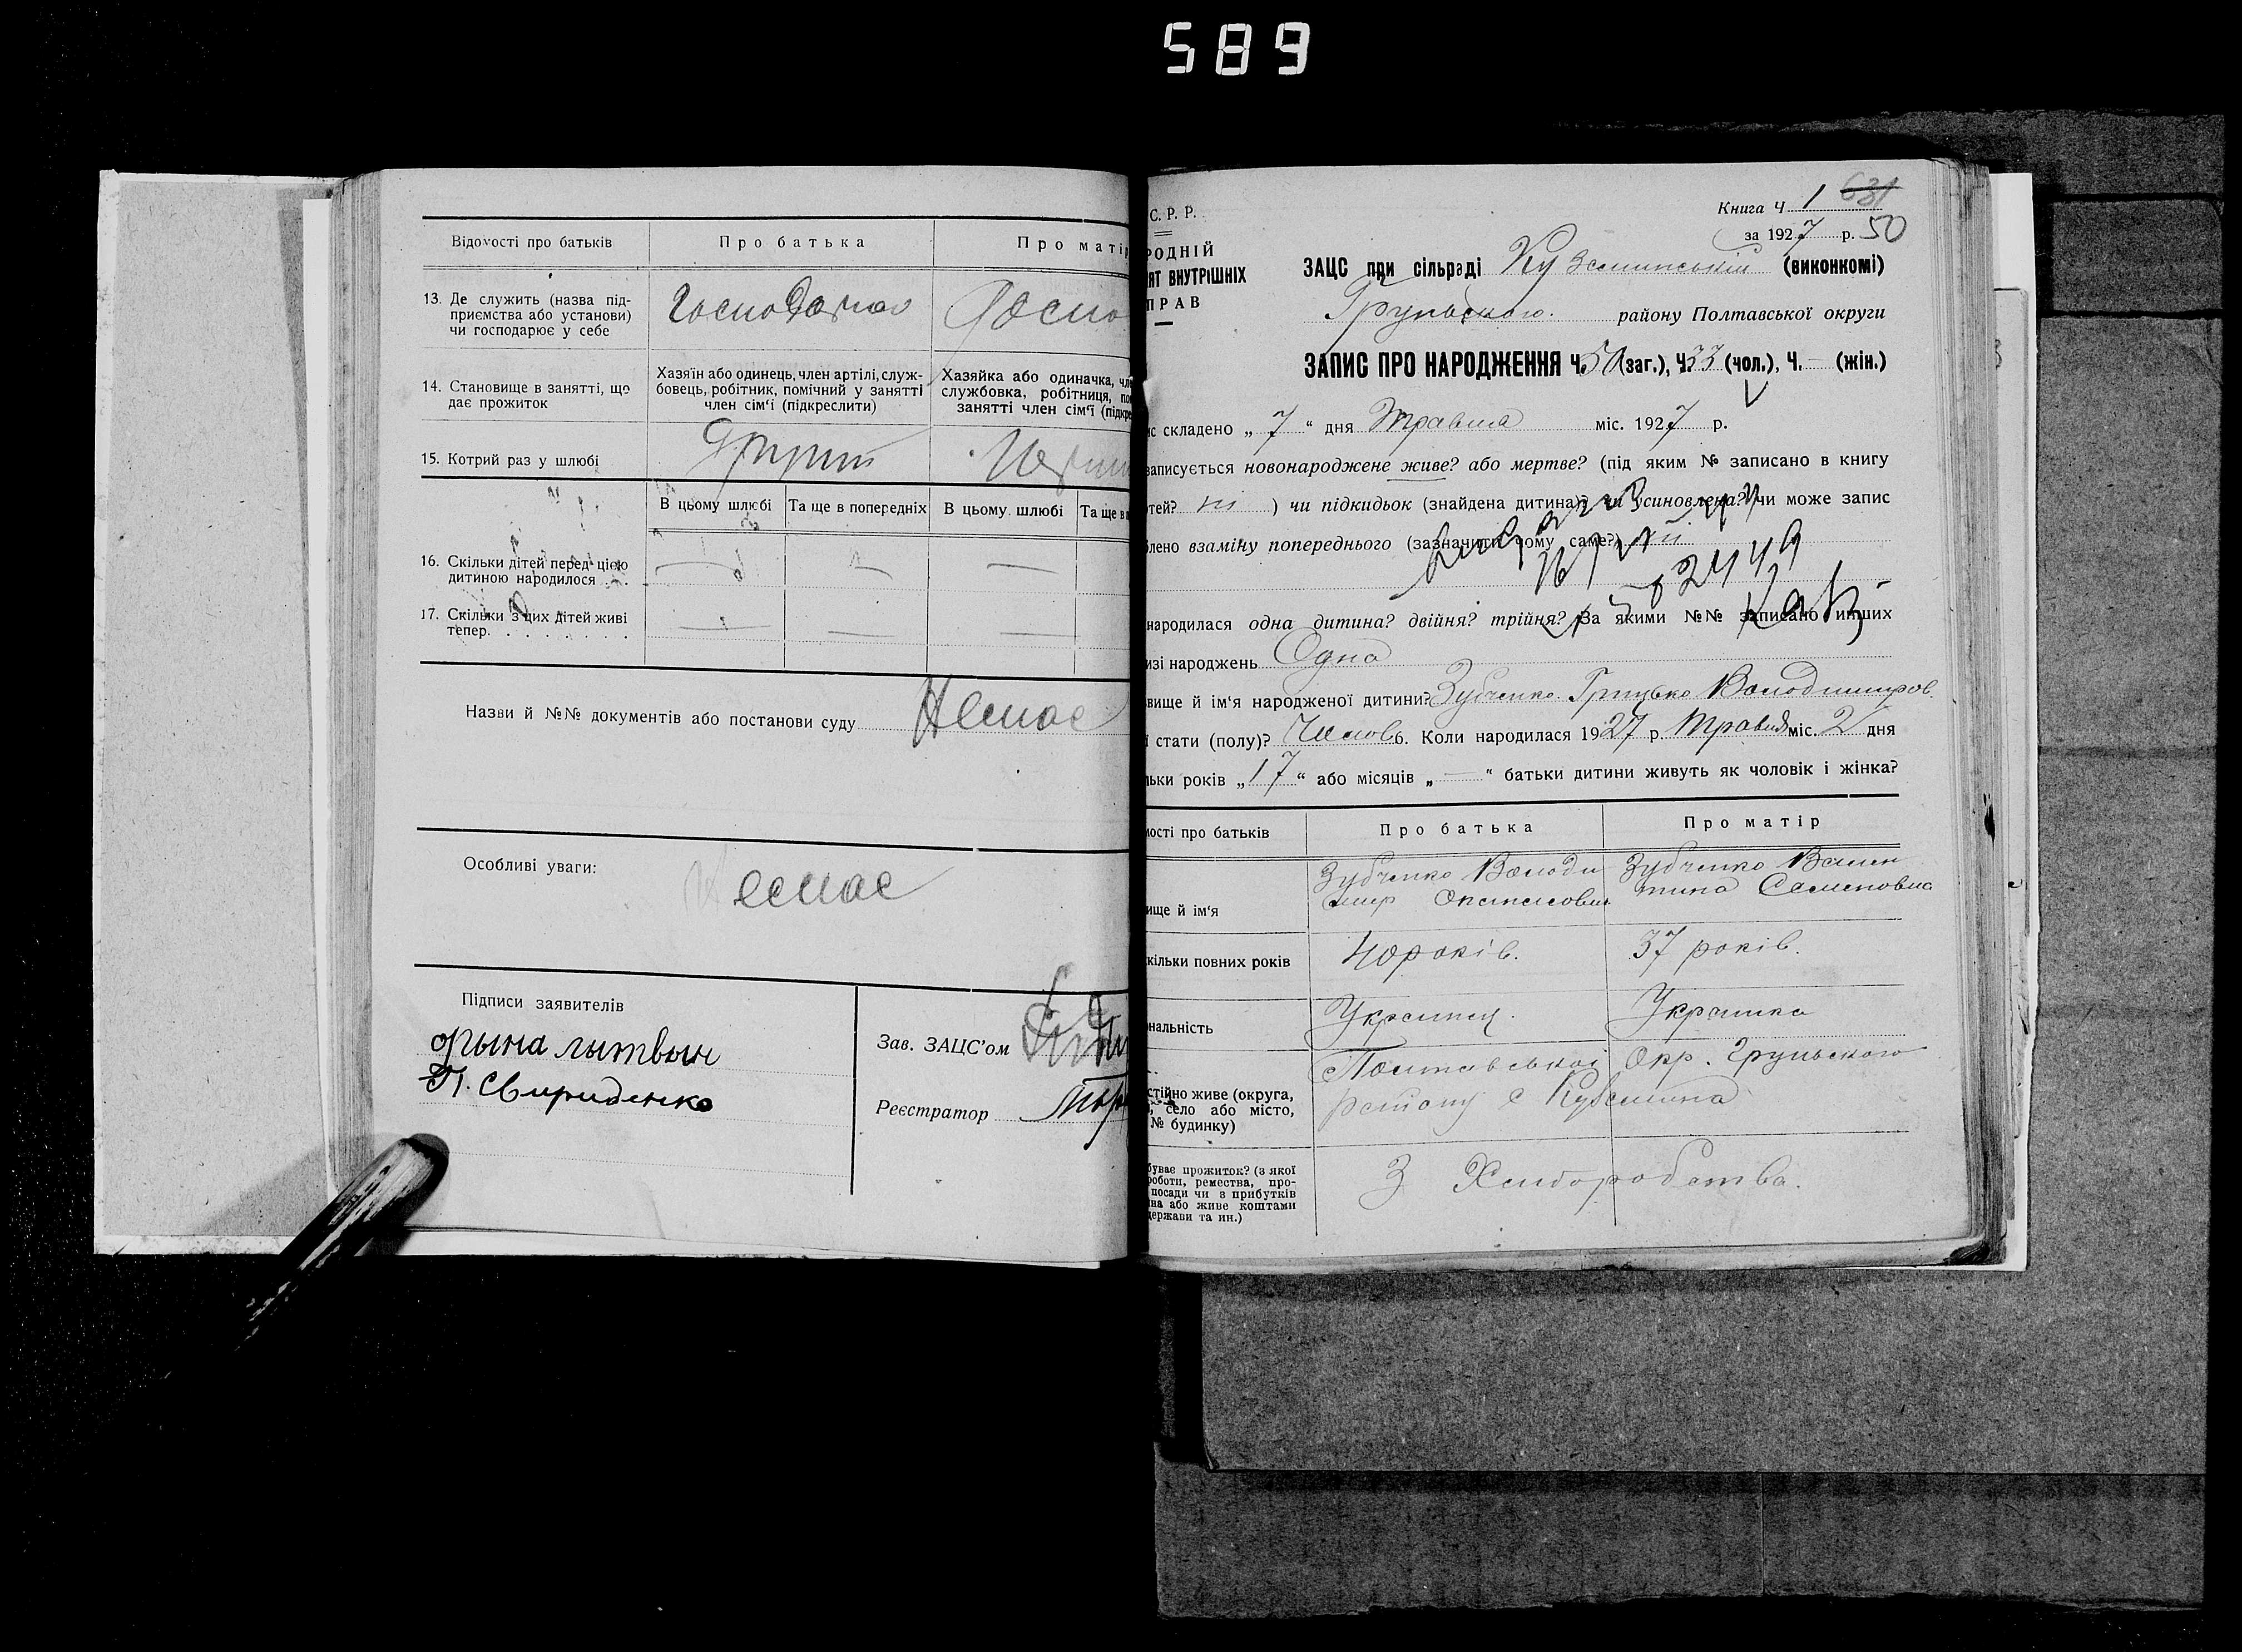 589
Відомості про батьків
Про батька
Про матір
13. Де служить (назва під-
приємства або установи)
чи господарює у себе
Господарює
Госпо
14. Становище в занятті, що
дає прожиток
Хазяїн або одинець, член артілі, служ-
бовець, робітник, помічний у занятті
член сім'ї (підкреслити)
Хазяйка або одиначка, чле
службовка, робітниця, по
занятті член сім'ї (підкре
15. Котрий раз у шлюбі
Другий
Перши
В цьому шлюбі
Та ще в попередніх
В цьому шлюбі
Та ще в
16. Скільки дітей перед цією
дитиною народилося . . .
17. Скільки з цих дітей живі
тепер. . . . . . . .
Назви й №№ документів або постанови суду Немає
Особливі уваги: Немає
Підписи заявителів
Зав. ЗАЦС'ом
П. Свириденко
Реєстратор
С. Р. Р.
РОДНІЙ
ЯТ ВНУТРІШНІХ
ПРАВ
Книга Ч. 1 631
за 1927 р. 50
ЗАЦС при сільраді Куземинській (виконкомі)
Груньського району Полтавської округи
ЗАПИС ПРО НАРОДЖЕННЯ Ч. 50 (заг.), Ч. 33 (чол.), Ч. — (жін.)
ис складено „ 7 “ дня Травня міс. 1927 р.
записується новонароджене живе? або мертве? (під яким № записано в книгу
ртей? ні ) чи підкидьок (знайдена дитина)? чи усиновлена? чи може запис
блено взаміну попереднього (зазначити чому саме?) ні
народилася одна дитина? двійня? трійня? За якими №№ записано инших
изі народжень Одна
вище й ім'я народженої дитини? Зубченко Грицько Володимиров.
ї стати (полу)? Чолов. 6. Коли народилася 1927 р. Травня міс. 2 дня
льки років „ 17 “ або місяців „ — “ батьки дитини живуть як чоловік і жінка?
мості про батьків
Про батька
Про матір
вище й ім'я
Зубченко Володи
мир Опанасович
Зубченко Вален
тина Семеновна
кільки повних років
40 років.
37 років.
ональність
Українец.
Українка
стійно живе (округа,
, село або місто,
№ будинку)
Полтавської Окр. Груньського
району с Куземина
буває прожиток? (з якої
роботи, ремества, про-
посади чи з прибутків
на або живе коштами
держави та ин.)
З Хліборобства.